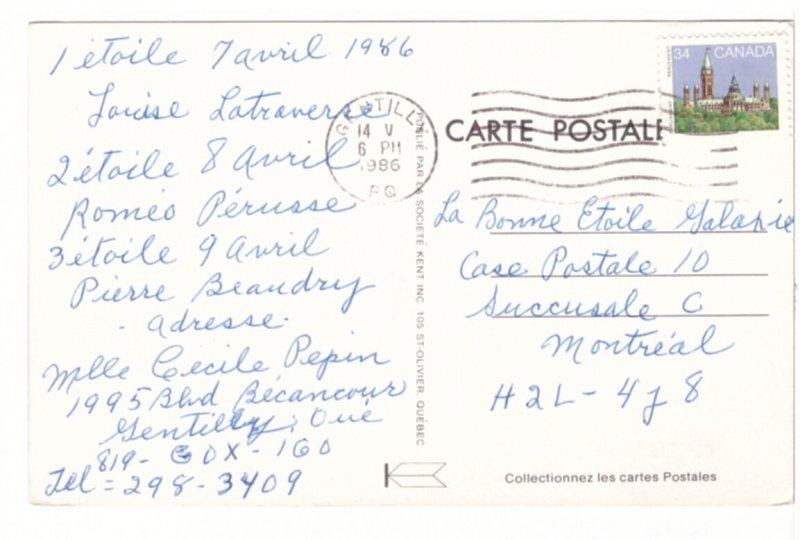 1 étoile 7 avril 1986
Louise Latraverse
2 étoile 8 Avril
Roméo Pérusse
3 étoile 9 Avril
Pierre Beaudry
- adresse -
Mlle Cecile Pepin
1995 Blvd Bécancour
Gentilly, Qué
819- GOX-1G0
Tel = 298-3409
PUBLIÉ PAR LA SOCIETÉ KENT INC 105 ST-OLIVIER, QUÉBEC
GENTILLY
14 V
6 PM
1986
PQ
CARTE POSTALE
34 CANADA
La Bonne Etoile Galaxie
Case Postale 10
Succusale C
Montréal
H2L-4J8
Collectionnez les cartes Postales